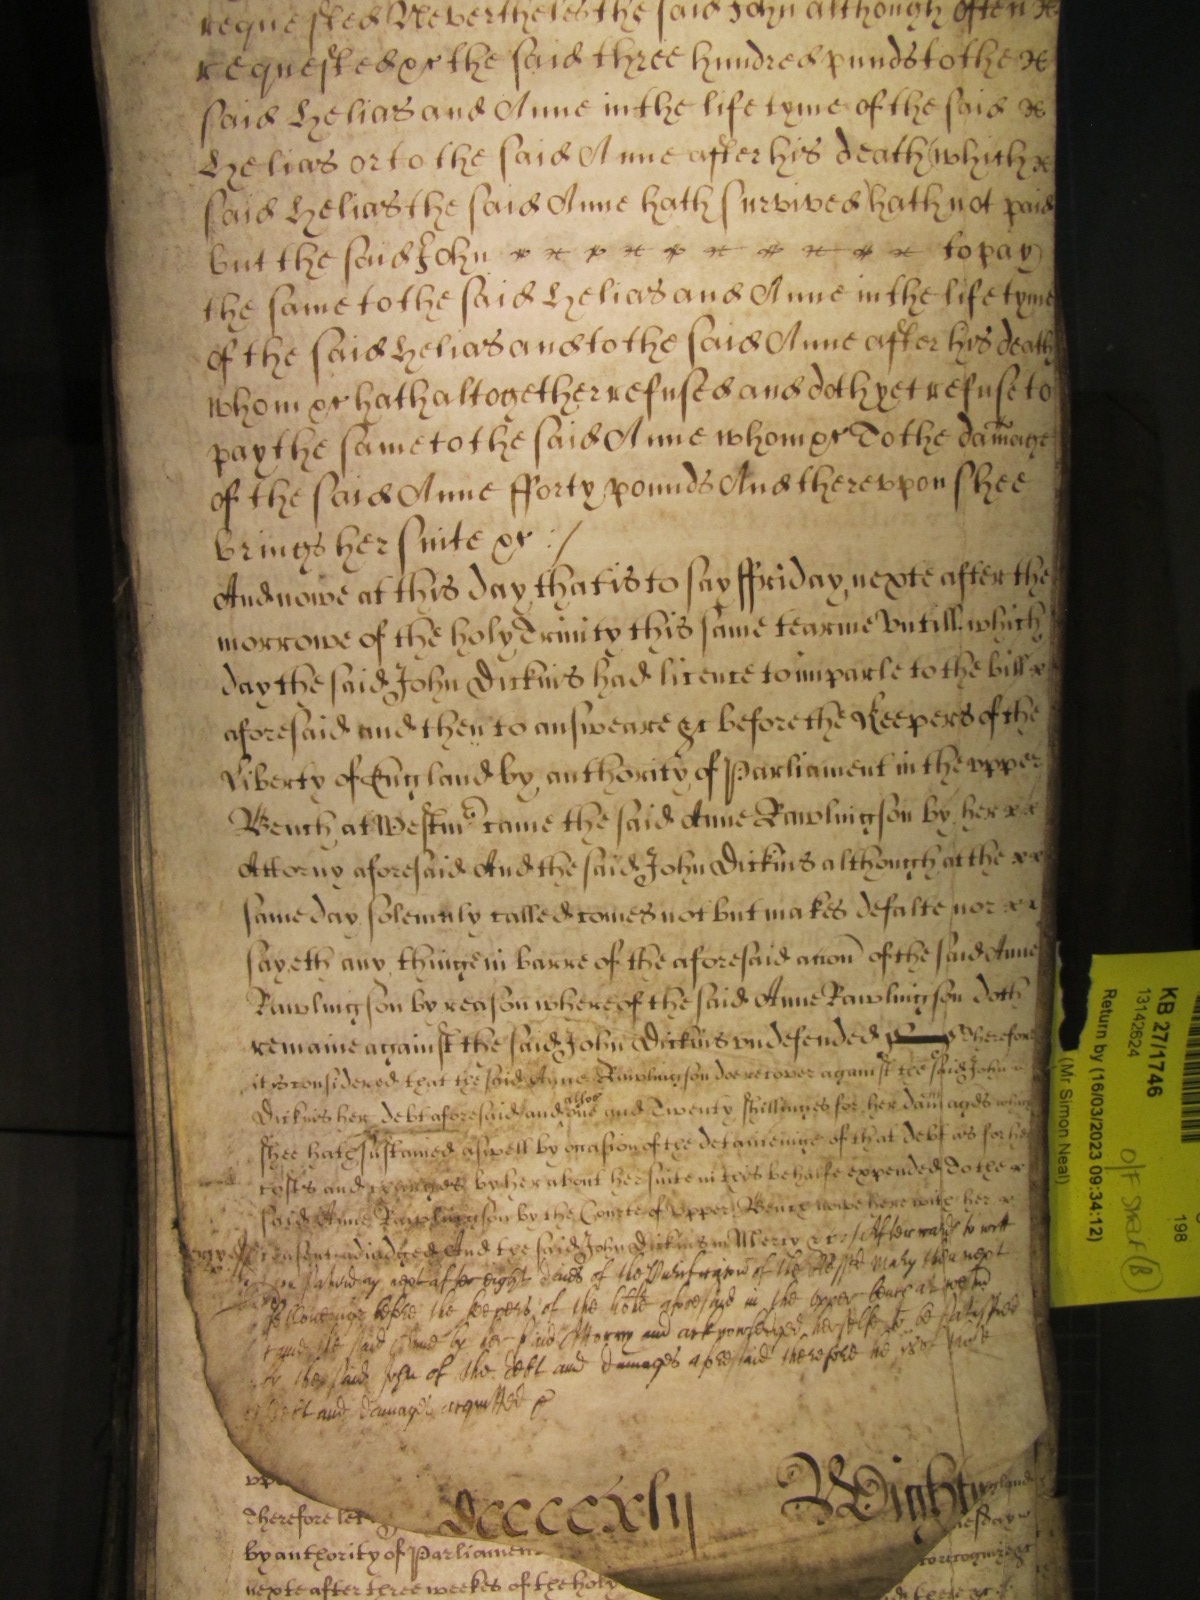 requested Neverthelesthe said John although often
requested &c the said three hundred punds to the
said Helias and Anne in the life tyme of the said
Helias or to the said Anne after his death (which
said Helias the said Anne hath survived) hath not paid
but the said John to pay
the same to the said Helias and Anne in the life tyme
of the said Helias and to the said Anne after his death
whom &c hath altogether refused and doth yet refuse to
pay the same to the said Anne whom &c To the damage
of the said Anne fforty pounds And therevpon shee
brings her suite &c :/
And nowe at this day that is to say ffriday nexte after the
morrowe of the holy Trinity this same tearme Vntill which
day the said John Dickins had licence to imparle to the bill
aforesaid and then to answeare &c before the Keepers of the
Liberty of England by authority of Parliament in the vpper
Bench at Westmr came the said Anne Rawlingson by her
Attorny aforesaid And the said John Dickins although at the
same day solemnly called comes not but makes defalte nor
sayeth any thinge in barre of the aforesaid accon of the said Anne
Rawlingson by reason whereof the said Anne Rawlingson doth
remaine against the said John Dickins vndefended Therefore
it is considered that the said Anne Rawlingson doe recover against the said John
Dickins her debt aforesaid and alsoe one and Twenty shillinges for her damages which
shee hath sustained aswell by occasion of the deteineinge of that debt as for her
costs and charges by her about her suite in this behalfe expended to the
said Anne Rawlingson by the Courte of vpper Bench nowe here with her
assent adiudged And the said John Dickins in Mercy &c / Afterwards to witt
on Saturday next after eight daies of the Purificacon of the blessed Mary then next
followinge before the keepers of the libtie aforesaid in the vpper bench at Westm
came the said Anne by her said Attorny and acknowledged herselfe to be satisfied
by the said John of the debt and damages aforesaid therefore he
debt and damages acquitted &c
Wightw
Therefore let
by authority of Parliamen
nexte after three weekes of the holy
KB 27/1746
13142624
Return by (16/03/2023 09:34:12)
(Mr Simon Neal)
198